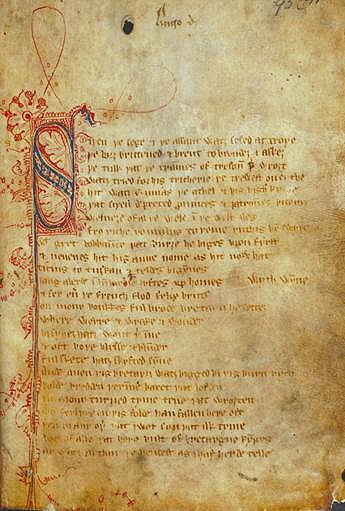 Siþen þe sege & þe assaut watz sesed at troye
þe borȝ brittened & brent to brondeȝ & askez
þe tulk þat þe trammes of tresoun þer wroȝt
watz tried for his tricherie þe trewest on erthe
hit watz ennias þe athel & his highe kynde
þat siþen depreced prouinces & patrounes bicome
welneȝe of al þe wele in þe west iles
fro riche romulus to rome ricchis hym swyþe
gret bobbaunce þat burȝe he biges vpon fyrst
& neuenes hit his aune nome as hit now hat
ticius to tuskan & teldes bigynnes
lyftes vp homes wyth wynne
& fer ouer þe french flod felix brutus
on mony bonkkes ful brode bretayn he settez
where werre & wrake & wonder
bi syþez hatz wont þerinne
& oft boþe blysse & blunder
ful skete hatz skyfted synne
ande quen þis bretayn watz bigged bi þis burn rych
bolde bredden þerinne baret þat lofden
in mony turned tyme tene þat wroȝten
mo ferlyes on þis folde han fallen here oft
þen in any oþer þat I wot syn þat ilk tyme
bot of alle þat here bult of bretaygne kynges
ay watz arthur þe hendest as I haf herde telle